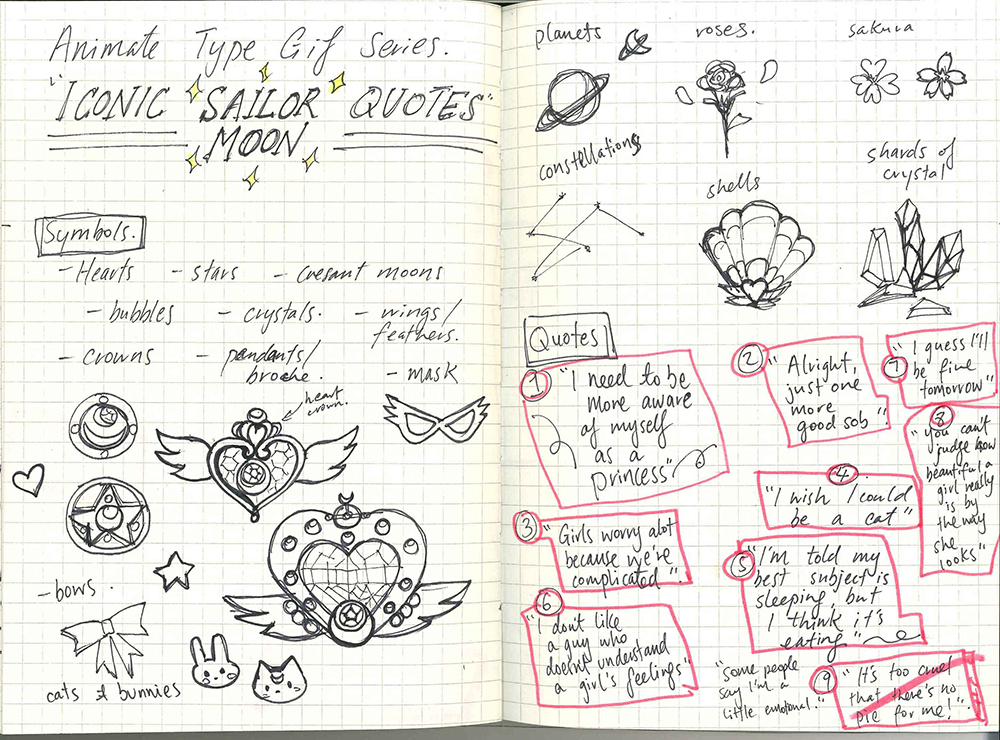 Animate Type Gif Series.
"ICONIC SAILOR QUOTES"
MOON
Symbols.
- Hearts - stars - cresant moons
- bubbles - crystals. - wings/
feathers.
- crowns - pendants/
broche. - mask
heart
crown.
- bows.
cats & bunnies
planets roses. sakura
constellations
shells
shards of
crystal
Quotes
1
"I need to be
more aware
of myself
as a
princess"
2
"Alright,
just one
more
good sob."
7
"I guess I'll
be fine
tomorrow"
3
"Girls worry alot
because we're
complicated".
4
"I wish I could
be a cat"
8
"you can't
judge how
beautiful a
girl really
is by
the way
she
looks"
5
"I'm told my
best subject is
sleeping, but
I think it's
eating"
6
"I don't like
a guy who
doesn't understand
a girl's feelings"
"Some people
say I'm a
little emotional."
9
"It's too cruel
that there's no
pie for me!".